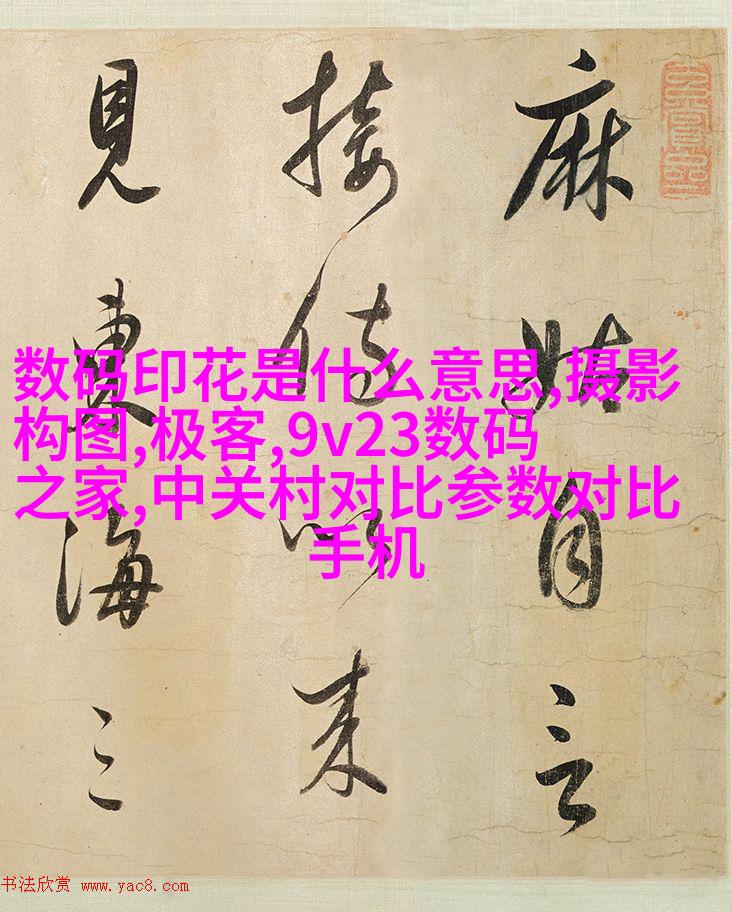 麻姑自言
接侍以来
見東海三
数码印花是什么意思,摄影
构图,极客,9v23数码
之家,中关村对比参数对比
手机
书法欣赏 www.yac8.com